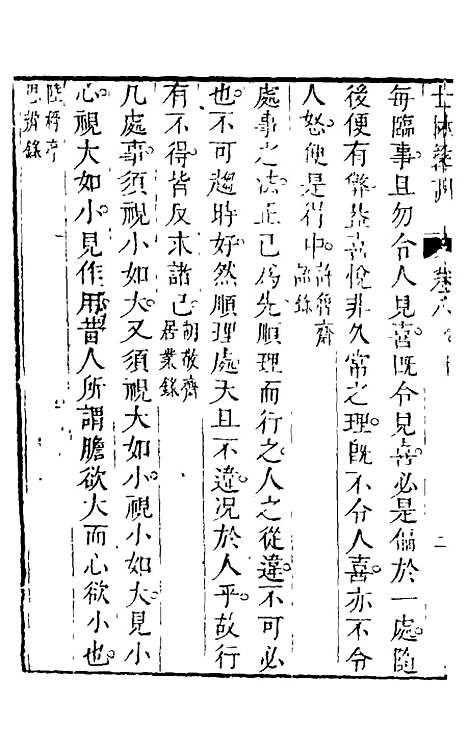 士林彝訓 卷八 二
每臨事且勿令人見喜既令見喜必是偏於一處隨
後便有弊蓋喜悅非久常之理旣不令人喜亦不令
人怒便是得中許魯齋語錄
處事之法正已爲先順理而行之人之從違不可必
也不可趨時好然順理處天且不違况於人乎故行
有不得皆反求諸已胡敬齋居業錄
凡處事須視小如大又須視大如小視小如大見小
心視大如小見作用昔人所謂膽欲大而心欲小也
陸桴亭思辨錄